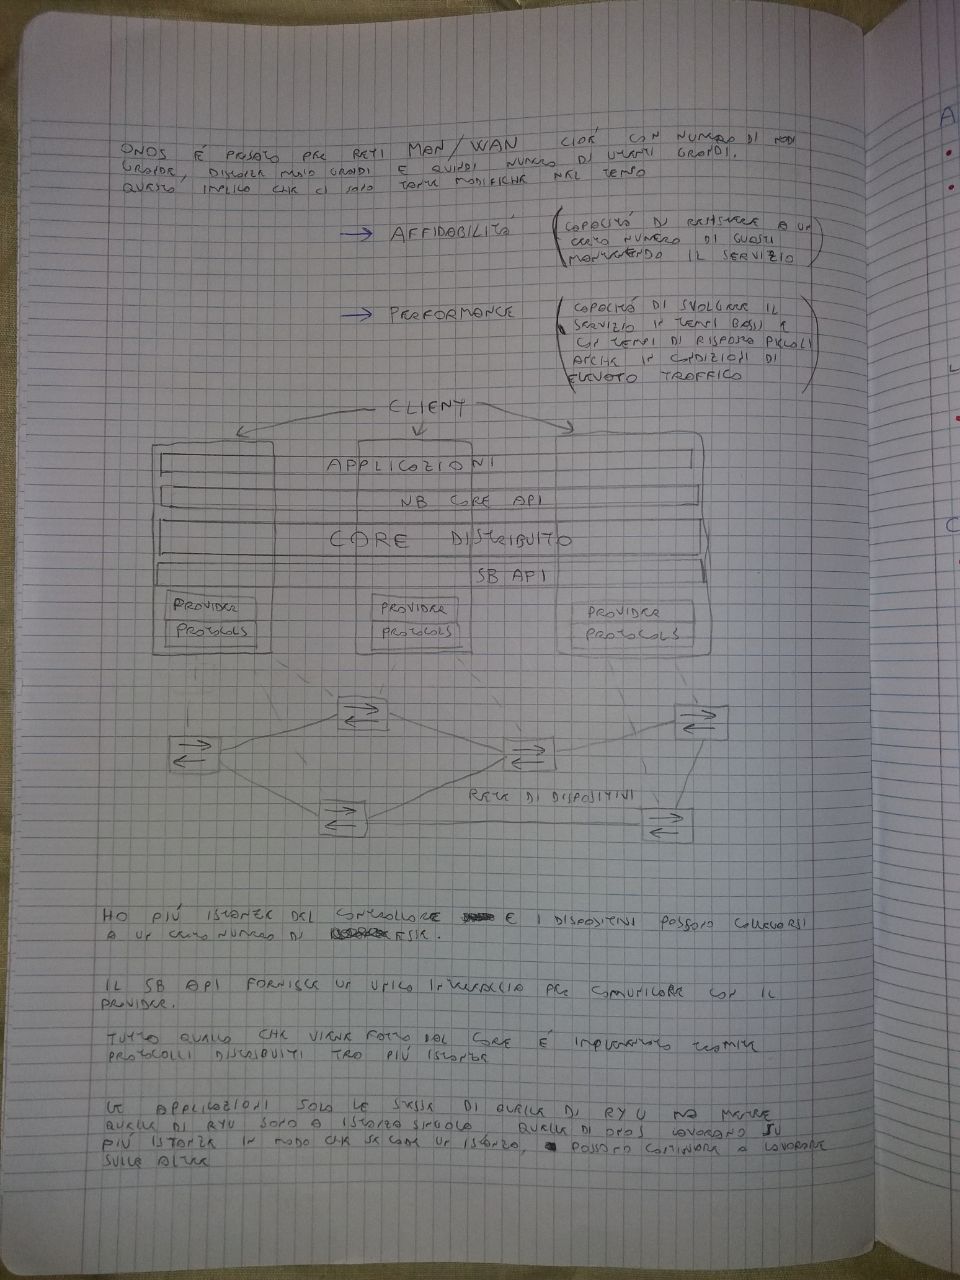 ONOS É PENSATO PER RETI MAN/WAN CIOÉ CON NUMERO DI NODI
GRANDE, DISTANZE MOLTO GRANDI E QUINDI NUMERO DI UTENTI GRANDI.
QUESTO IMPLICA CHE CI SONO TANTE MODIFICHE NEL TEMPO
→ AFFIDABILITÁ
(CAPACITÁ DI RESISTERE A UN
CERTO NUMERO DI GUASTI
MANTENENDO IL SERVIZIO)
→ PERFORMANCE
(CAPACITÁ DI SVOLGERE IL
SERVIZIO IN TEMPI BASSI E
CON TEMPI DI RISPOSTA PICCOLI
ANCHE IN CONDIZIONI DI
ELEVATO TRAFFICO)
CLIENT
APPLICAZIONI
NB CORE API
CORE DISTRIBUITO
SB API
PROVIDER PROVIDER PROVIDER
PROTOCOLS PROTOCOLS PROTOCOLS
RETE DI DISPOSITIVI
HO PIÚ ISTANZE DEL CONTROLLORE E I DISPOSITIVI POSSONO COLLEGARSI
A UN CERTO NUMERO DI ESSE.
IL SB API FORNISCE UN UNICO INTERFACCIA PER COMUNICARE CON IL
PROVIDER.
TUTTO QUELLO CHE VIENE FATTO DAL CORE É IMPLEMENTATO TRAMITE
PROTOCOLLI DISTRIBUITI TRA PIÚ ISTANZE
LE APPLICAZIONI SONO LE STESSE DI QUELLE DI RYU MA MENTRE
QUELLE DI RYU SONO A ISTANZA SINGOLA QUELLE DI ONOS LAVORANO SU
PIÚ ISTANZE IN MODO CHE SE CADE UN ISTANZA, POSSONO CONTINUARE A LAVORARE
SULLE ALTRE